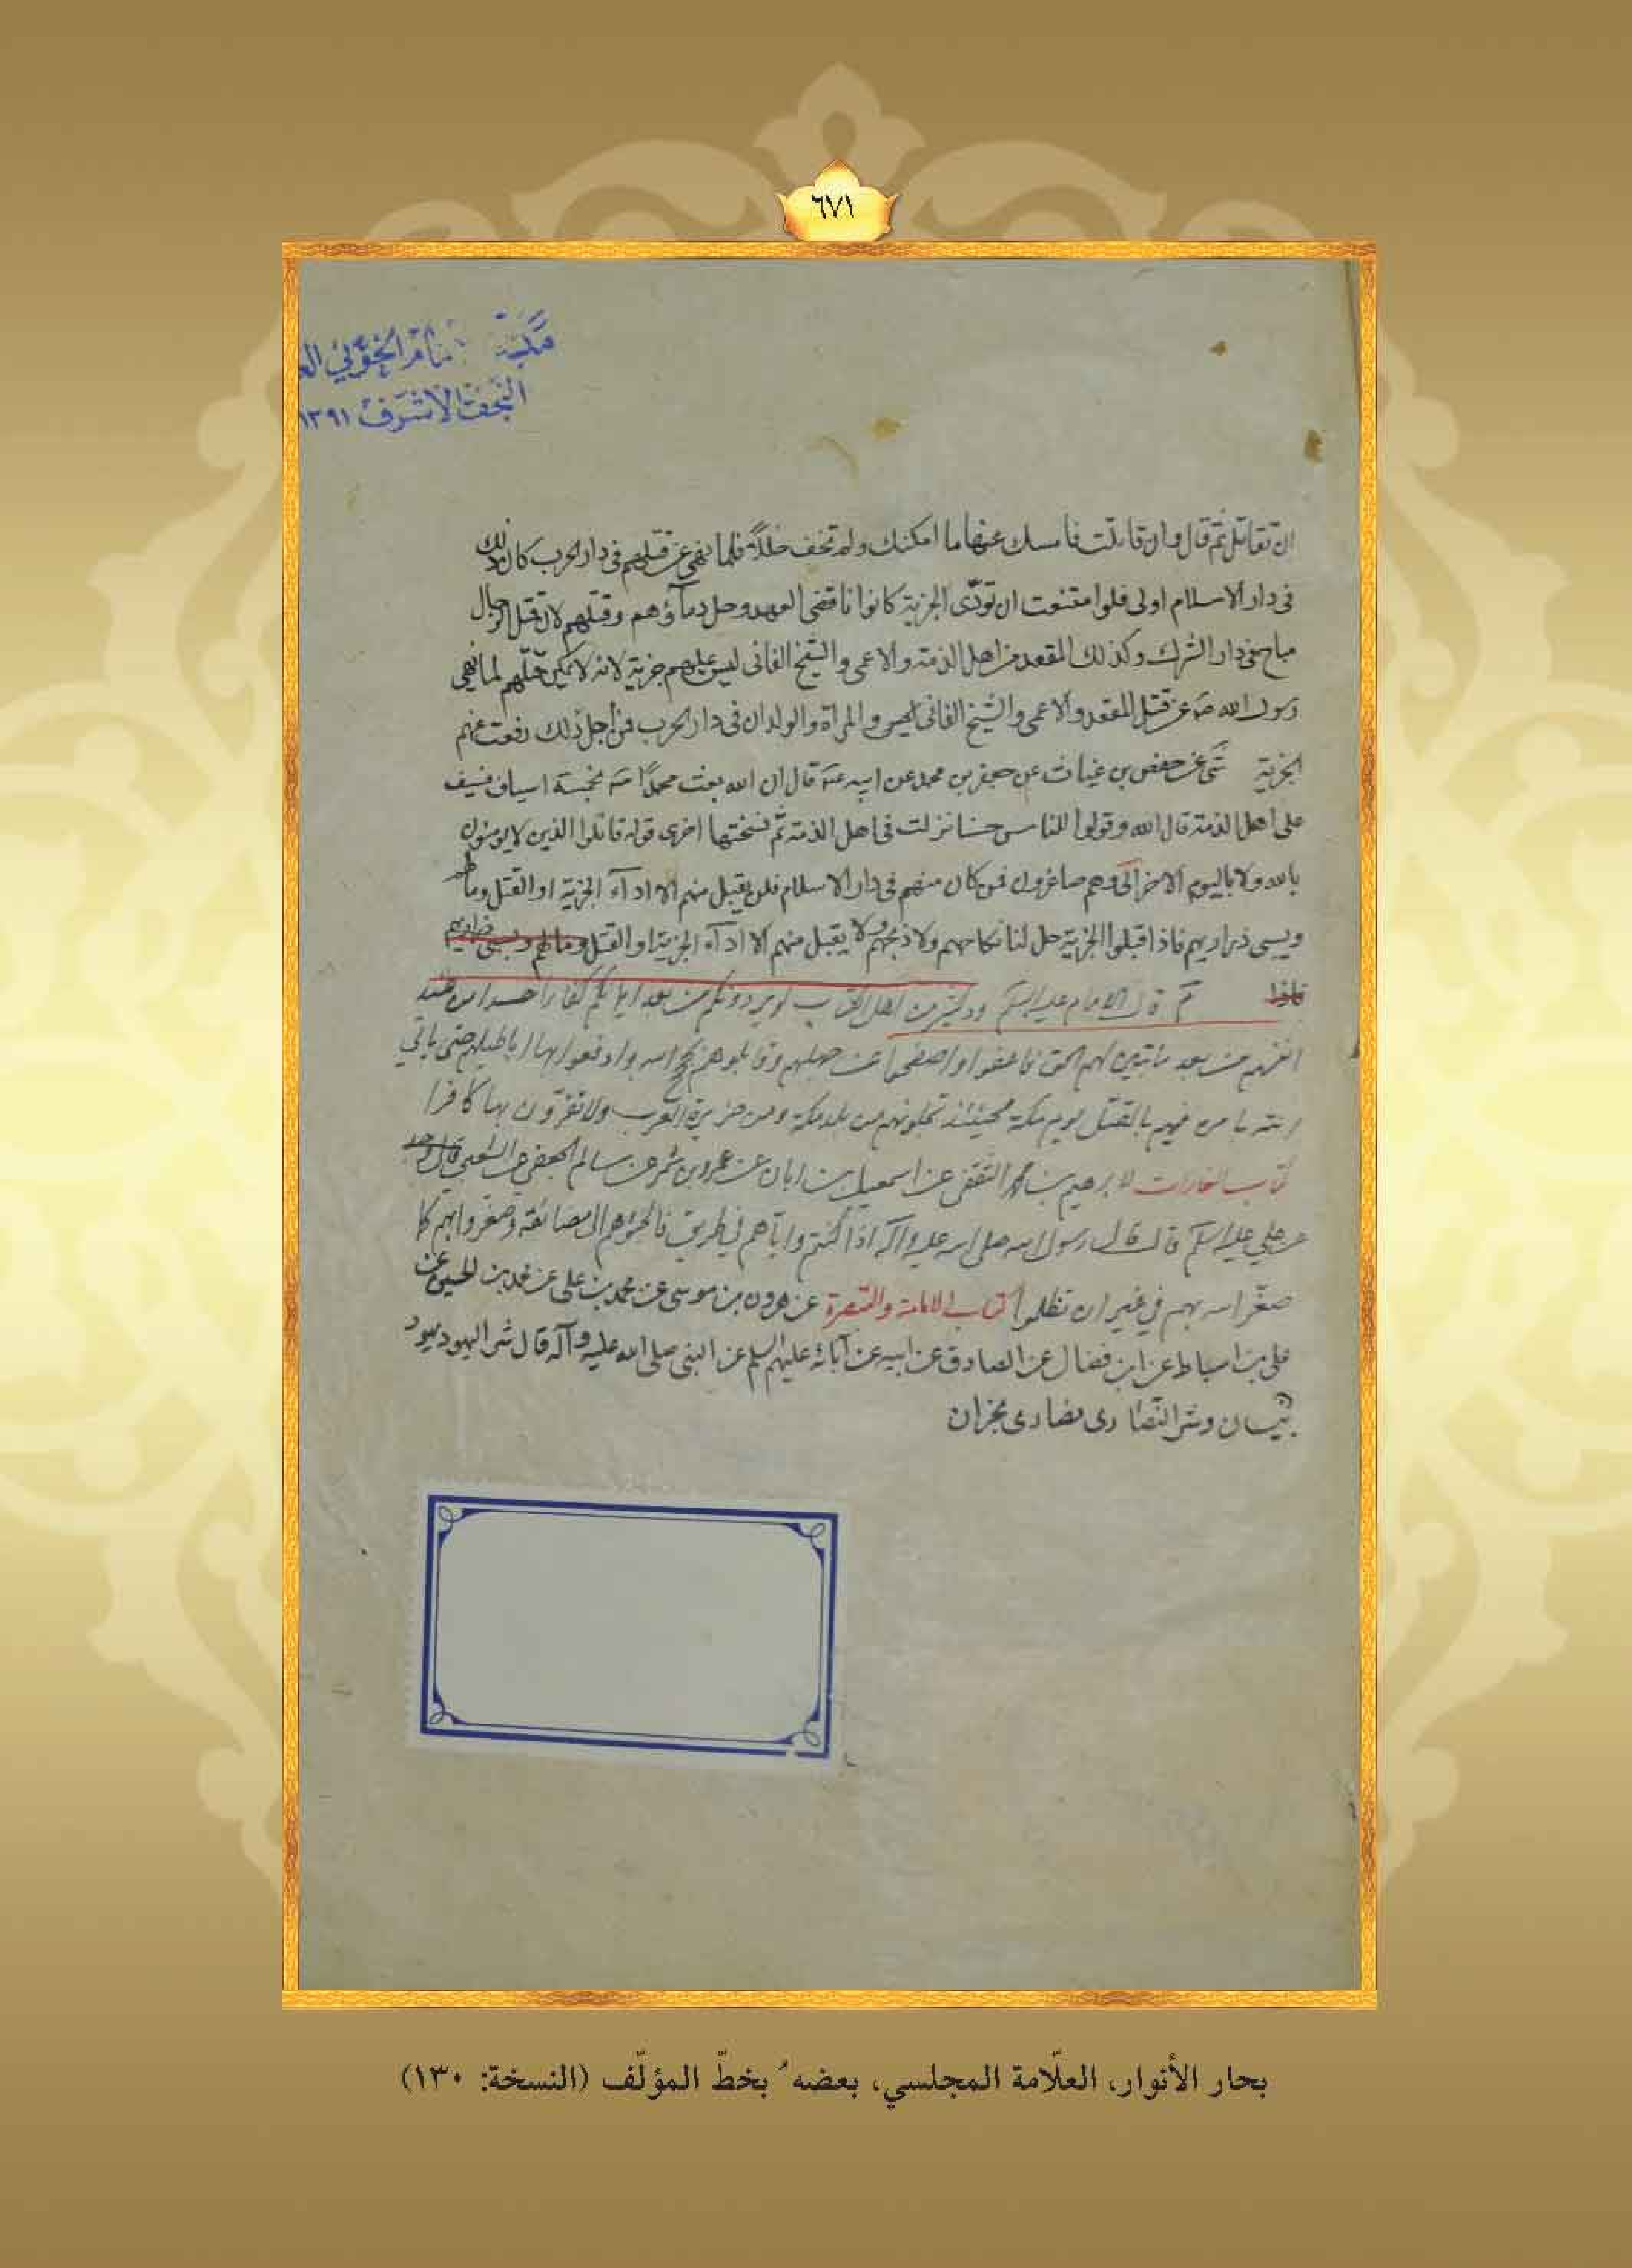 ٦٧١
مكتبة الامام الخوئي الع
النجف الاشرف ١٣٩١
ان تقاتل ثم قال وان قاتلت فامسك عنها ما امكنك ولم تخف خللاً فلما نهى عن قتلهم فى دار الحرب كان ذلك
فى دار الاسلام اولى فلو امتنعت ان تؤدّى الجزية كانوا ناقضى العهد وحل دماؤهم وقتلهم لان قتل الرجال
مباح فى دار الشرك وكذلك المقعد من اهل الذمة والاعمى والشيخ الفانى ليس عليهم جزية لانه لا يمكن قتلهم لما نهى
رسول الله صه عن قتل المقعد والاعمى والشيخ الفانى والمراة والولدان فى دار الحرب فمن اجل ذلك رفعت عنهم
الجزية شى عن حفص بن غياث عن جعفر بن محمد عن ابيه قال ان الله بعث محمدًا بخمسة اسياف فسيف
على اهل الذمة قال الله وقولوا للناس حسنا نزلت فى اهل الذمة ثم نسختها اخرى قوله قاتلوا الذين لا يومنون
بالله ولا باليوم الاخر الى وهم صاغرون فمن كان منهم فى دار الاسلام فلن يقبل منهم الا اداء الجزية او القتل وما لهم
ويسبى ذراريهم فاذا قبلوا الجزية حل لنا نكاحهم ولا ذبحهم ولا يقبل منهم الا اداء الجزية او القتل ومالهم ويسبى ذراريهم
فاذا ثم قال الامام عليه السلم ود كثير من اهل الكتاب لو يردونكم من بعد ايمانكم كفارا حسدا من عند
انفسهم من بعد ما تبين لهم الحق فاعفوا واصفحوا عن جهلهم وقابلوهم بحجج الله وادفعوا بها اباطيلهم حتى ياتي
الله بامره فيهم بالقتل يوم مكة فحينئذ تجلونهم من بلد مكة ومن جزيرة العرب ولا تقرون بها كافرا
كتاب الغارات لابرهيم بن محمد الثقفي عن اسمعيل بن ابان عن عمرو بن شمر عن سالم الجعفي عن الشعبي قال
عن علي عليه السلم قال قال رسول الله صلى الله عليه وآله اذا كنتم واياهم في طريق فالجئوهم الى مضائقه وصغروا بهم كما
صغّر الله بهم في غير ان تظلموا كتاب الامامة والتبصرة عن هرون بن موسى عن محمد بن على عن محمد بن الحسين عن
على بن اسباط عن ابن فضال عن الصادق عن ابيه عن آبائه عليهم السلم عن النبى صلى الله عليه وآله قال شر اليهود يهود
بيسان وشر النصارى نصارى نجران
بحار الأنوار، العلّامة المجلسي، بعضهُ بخطّ المؤلّف (النسخة: ١٣٠)